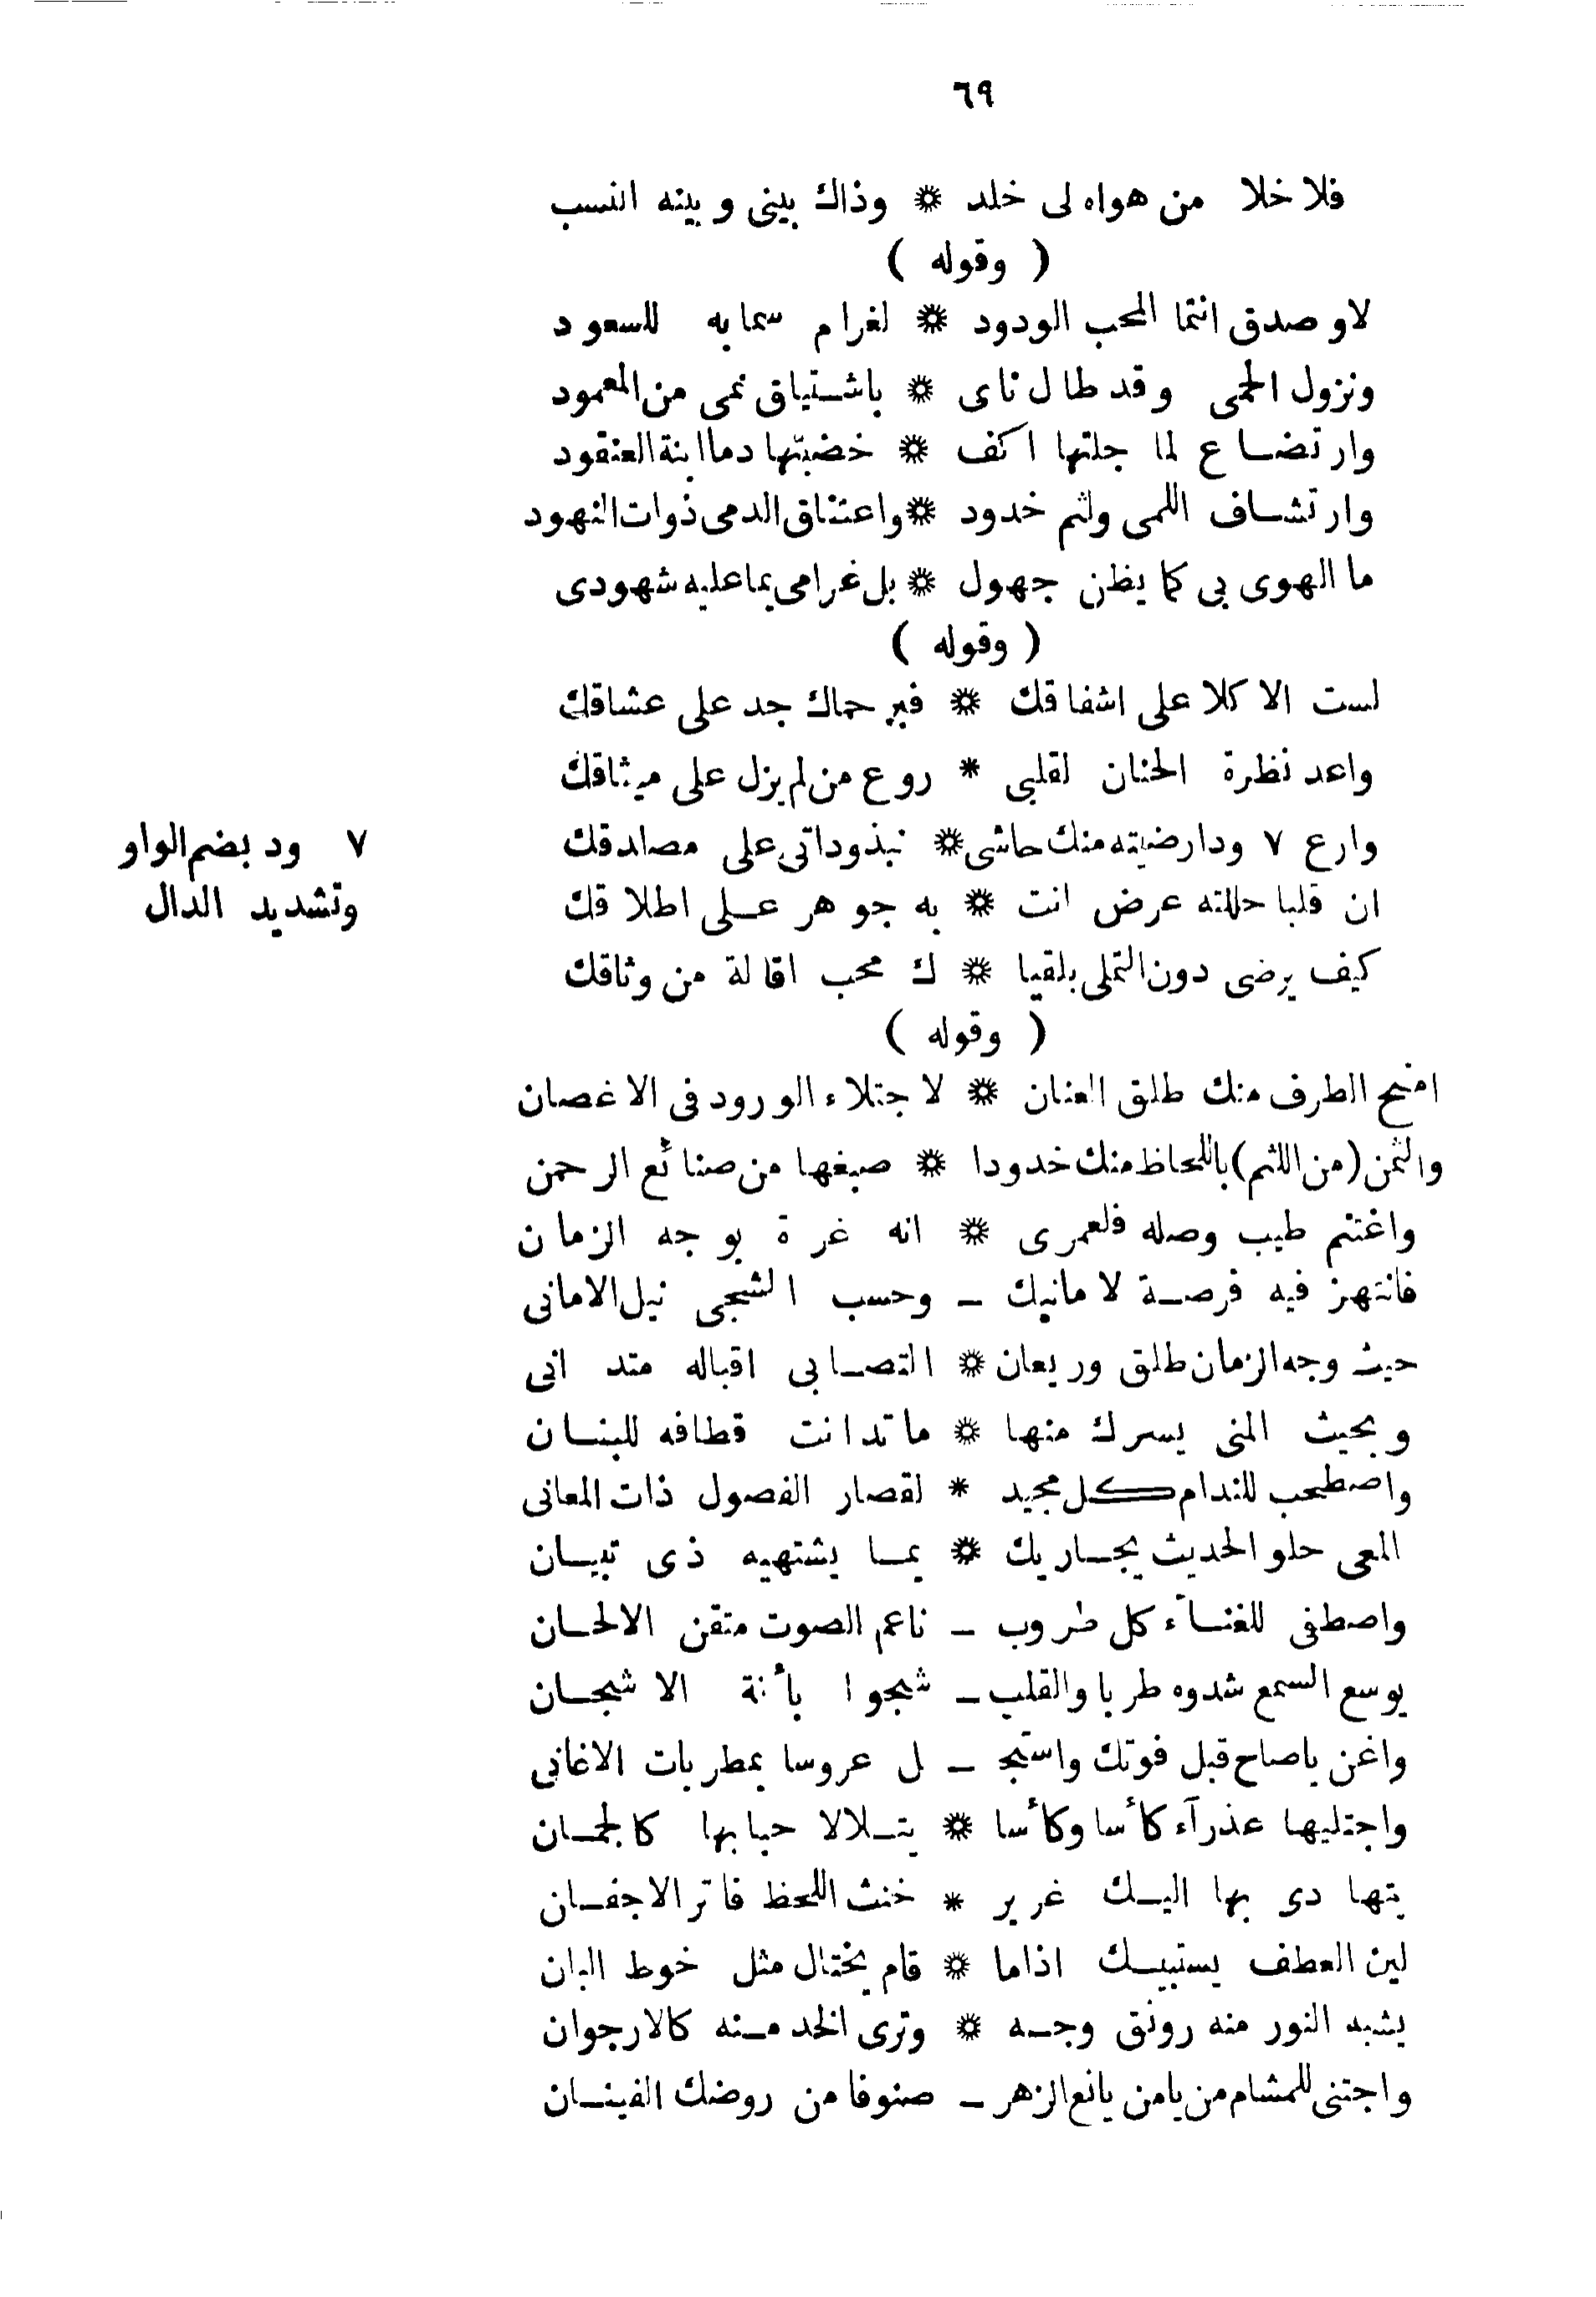 ٦٩
فلا خلا من هواه لى خلد * وذاك بينى و بينه النسب
( وقوله )
لاو صدق انتما المحب الودود * لغرام سمابه للسعود
ونزول الحمى وقد طال ناى * باشتياق نمى من المعمود
وارتضاع لما جلتها اكف * خضبتها دما ابنة العنقود
وارتشاف اللمى ولثم خدود * واعتناق الدمى ذوات النهود
ما الهوى بى كما يظن جهول * بل غرامى بما عليه شهودى
( وقوله )
لست الا كلا على اشفاقك * فبر حماك جد على عشاقك
واعد نظرة الحنان لقلبى * روع من لم يزل على ميثاقك
وارع ٧ ودا رضيته منك حاشى * نبذوداتى على مصادقك
٧ ود بضم الواو
وتشديد الدال
ان قلبا حللته عرض انت * به جوهر على اطلاقك
كيف يرضى دون التملى بلقيا * ك محب اقالة من وثاقك
( وقوله )
امنح الطرف منك طلق العنان * لاجتلاء الورود فى الاغصان
والثمن (من اللثم) باللحاظ منك خدودا * صبغها من صنائع الرحمن
واغتنم طيب وصله فلعمرى * انه غرة بوجه الزمان
فانتهز فيه فرصة لامانيك ـ وحسب الشجى نيل الامانى
حيث وجه الزمان طلق وريعان * التصابى اقباله متدانى
وبحيث المنى يسرك منها * ماتدانت قطافه للبنان
واصطحب للندام كل مجيد * لقصار الفصول ذات المعانى
المعى حلو الحديث يجاريك * بما يشتهيه ذى تبيان
واصطفى للغنآء كل طروب ـ ناعم الصوت متقن الالحان
يوسع السمع شدوه طربا والقلب ـ شجوا بأنة الاشجان
واغن ياصاح قبل فوتك واستج ـ ل عروسا بمطربات الاغانى
واجتليها عذرآء كأسا وكأسا * يتلالا حبابها كالجمان
يتهادى بها اليك غرير * خنث اللحظ فاتر الاجفان
لين العطف يستبيك اذاما * قام يختال مثل خوط البان
يشبه النور منه رونق وجه * وترى الخد منه كالارجوان
واجتنى للمشام من يامن يانع الزهر ـ صنوفا من روضك الفينان